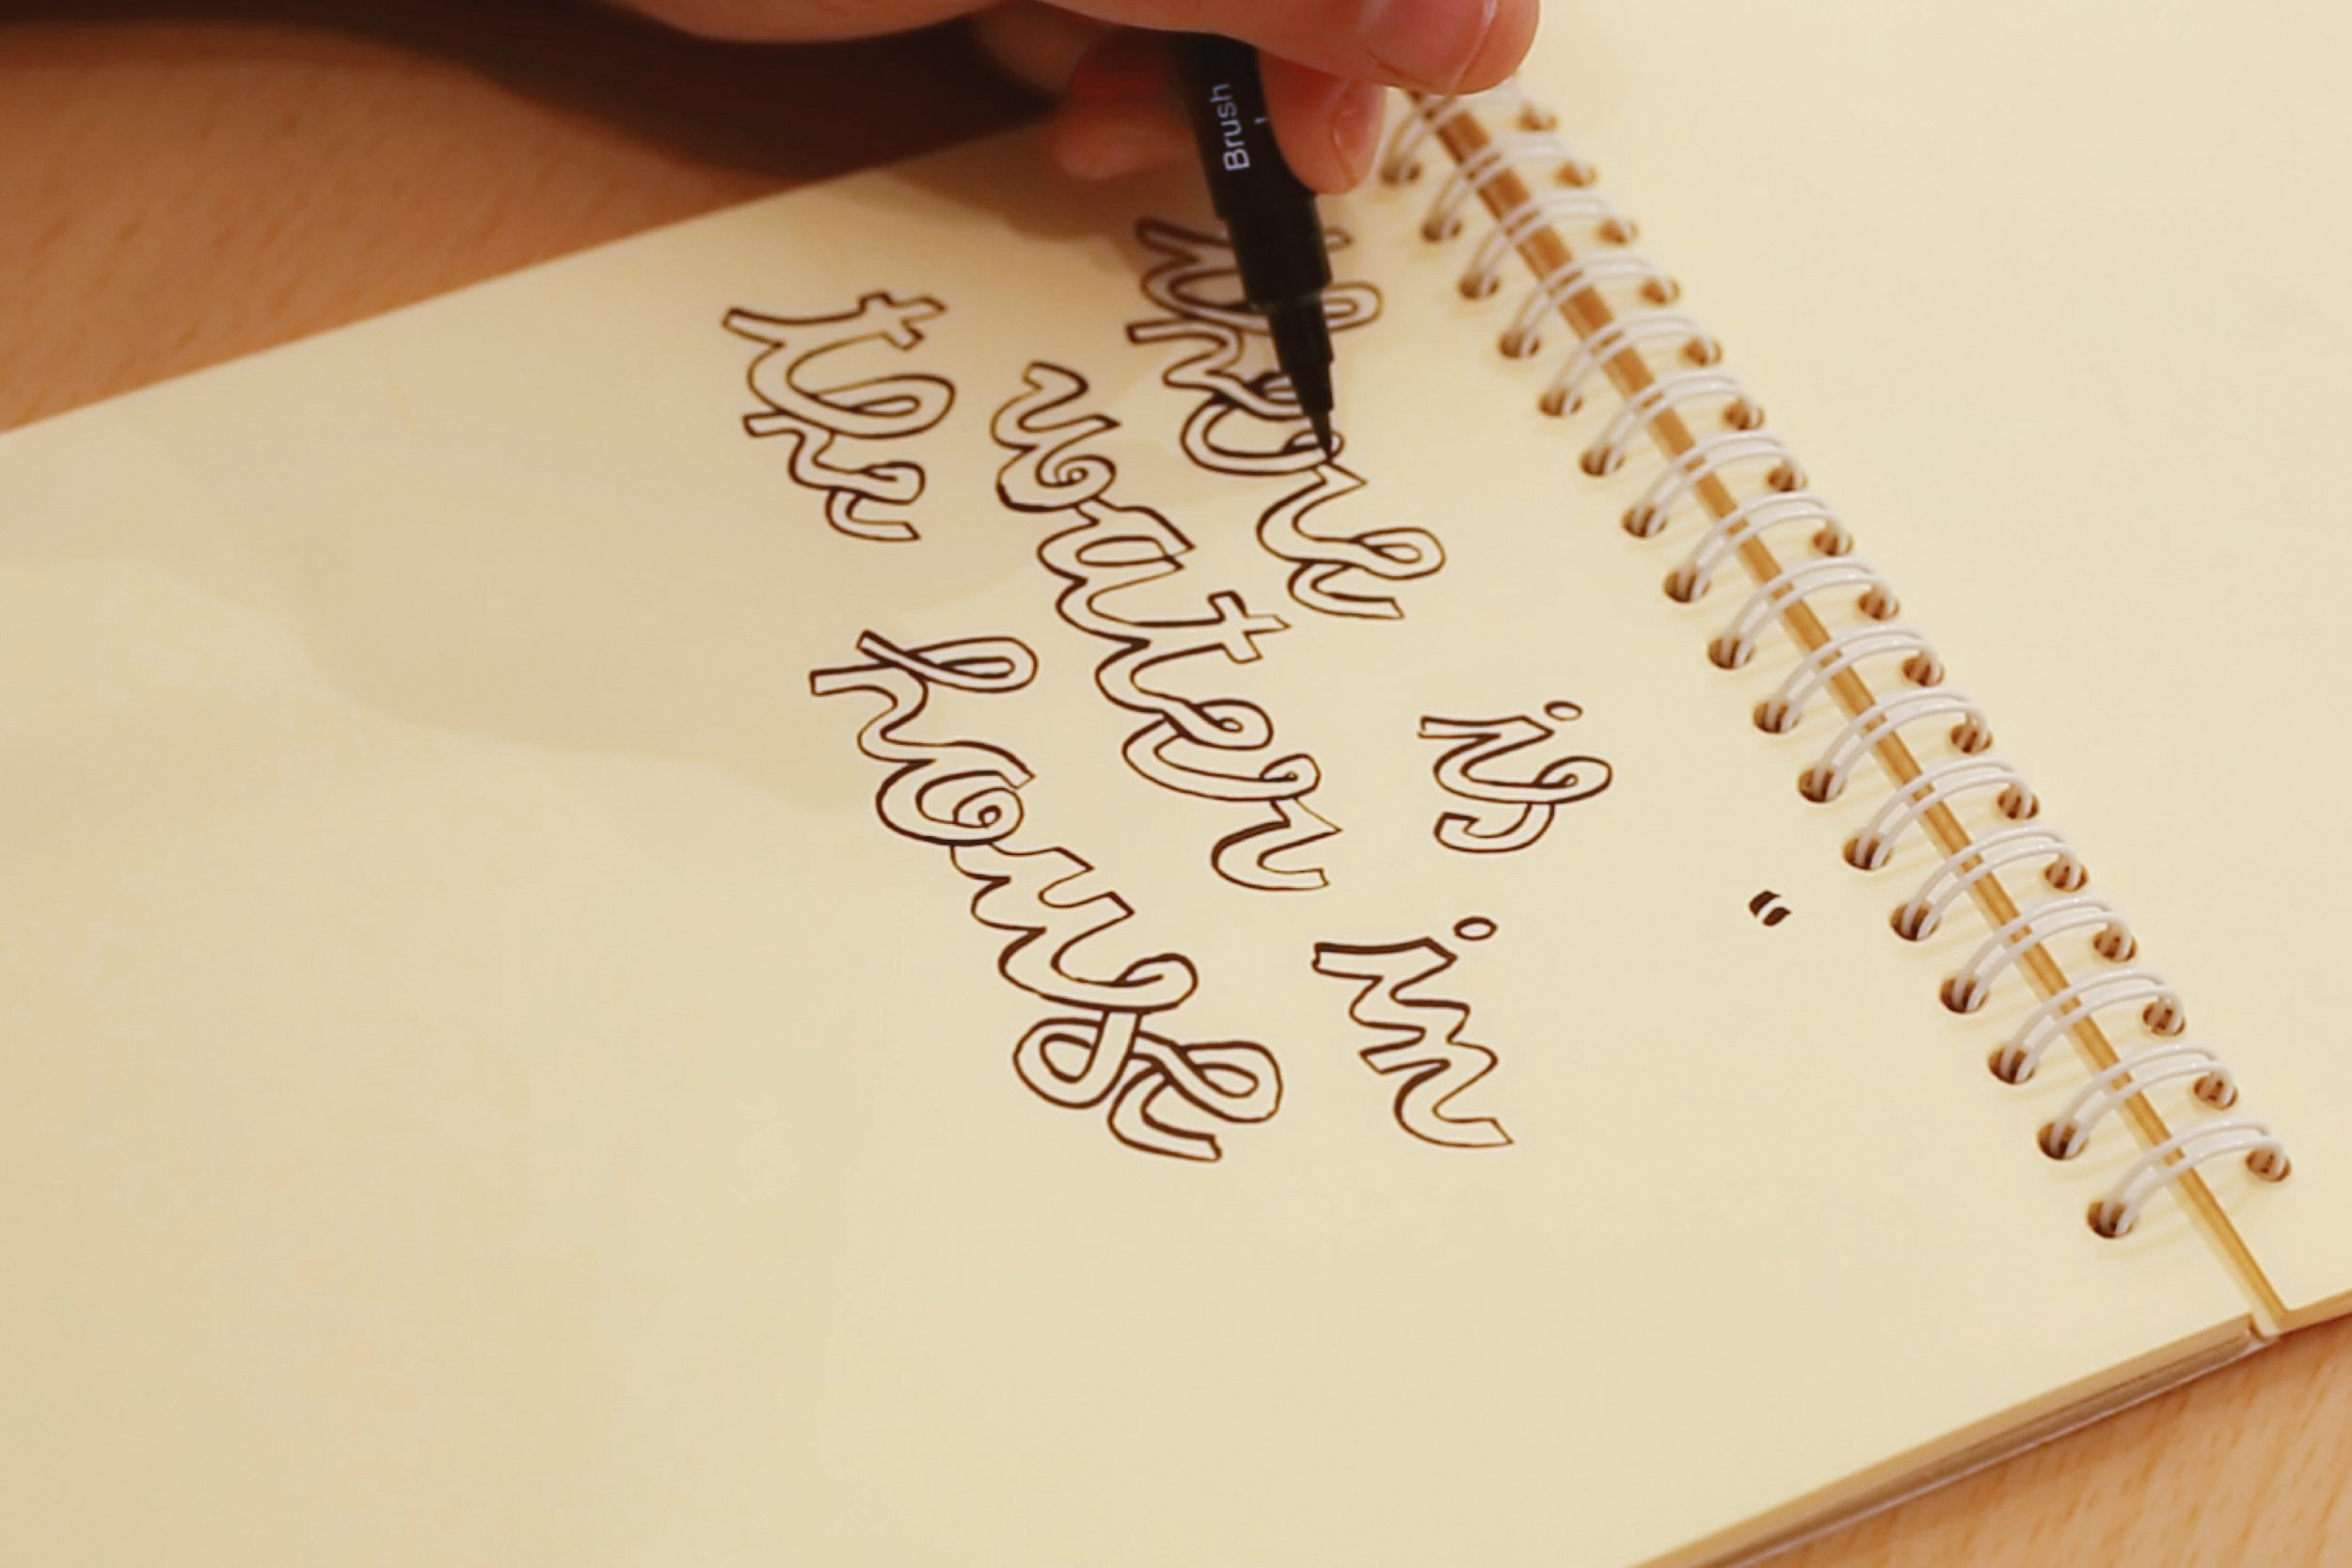 “
there is
water in
the house
Brush